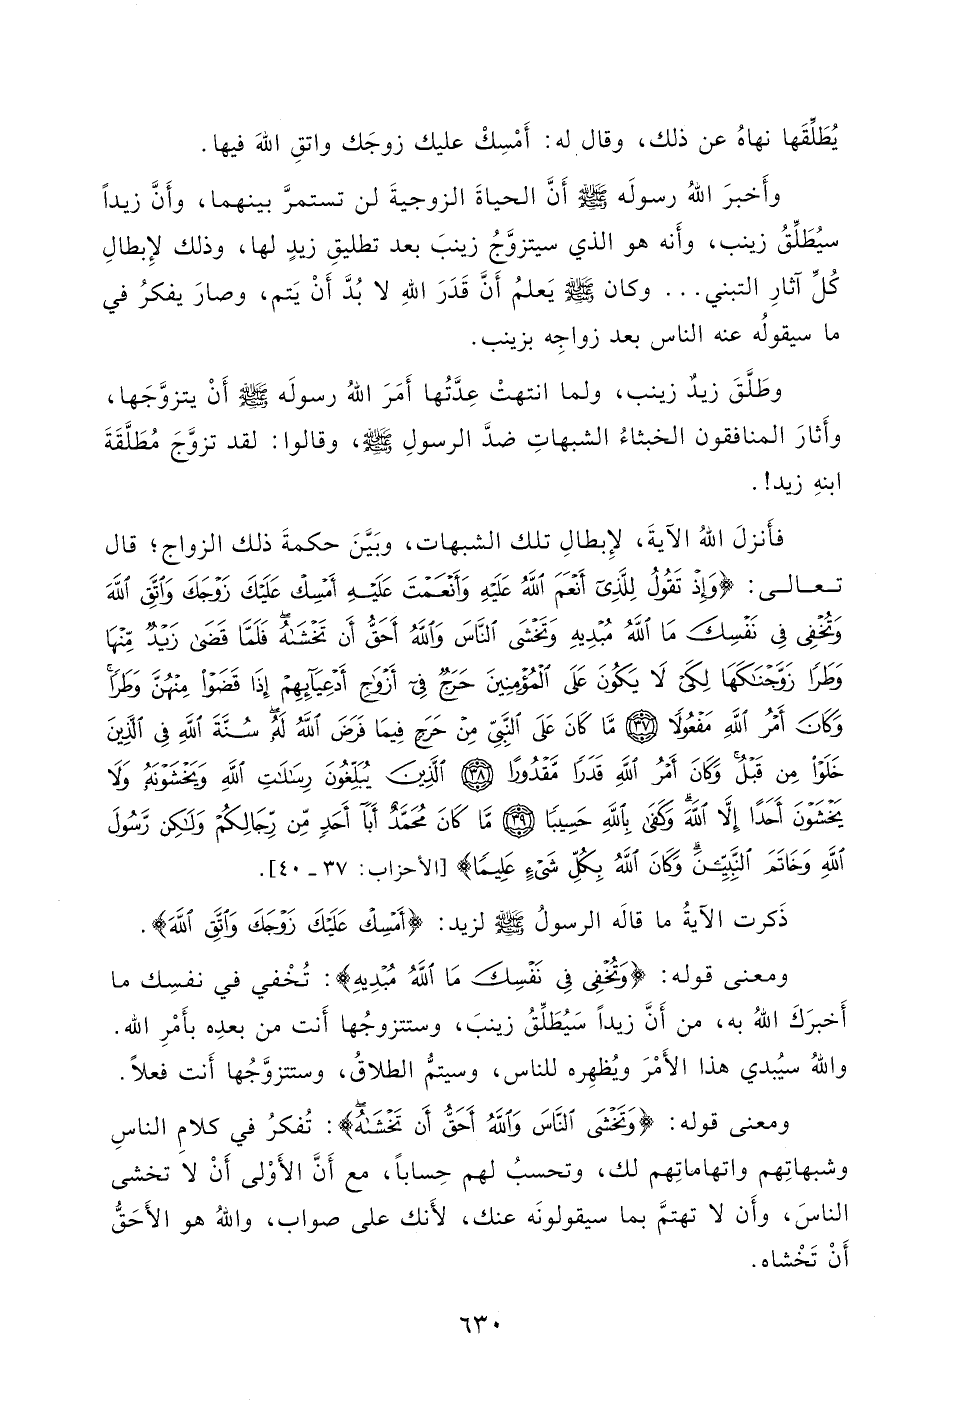 يُطَلِّقَها نهاهُ عن ذلك، وقال له: أَمْسِكْ عليك زوجَك واتقِ اللهَ فيها.
وأَخبرَ اللهُ رسولَه ﷺ أَنَّ الحياةَ الزوجيةَ لن تستمرَّ بينهما، وأَنَّ زيداً
سيُطَلِّقُ زينب، وأَنه هو الذي سيتزوَّجُ زينبَ بعد تطليقِ زيدٍ لها، وذلك لإِبطالِ
كُلِّ آثارِ التبني... وكان ﷺ يَعلمُ أَنَّ قَدَرَ اللهِ لا بُدَّ أَنْ يَتم، وصارَ يفكرُ في
ما سيقولُه عنه الناس بعد زواجِه بزينب.
وطَلَّقَ زيدٌ زينب، ولما انتهتْ عِدَّتُها أَمَرَ اللهُ رسولَه ﷺ أَنْ يتزوَّجَها،
وأَثارَ المنافقون الخبثاءُ الشبهاتِ ضدَّ الرسولِ ﷺ، وقالوا: لقد تزوَّجَ مُطَلَّقَةَ
ابنهِ زيد!.
فأَنزلَ اللهُ الآيةَ، لإِبطالِ تلك الشبهات، وبَيَّنَ حكمةَ ذلك الزواج؛ قال
تعالى: ﴿وَإِذْ تَقُولُ لِلَّذِىٓ أَنْعَمَ ٱللَّهُ عَلَيْهِ وَأَنْعَمْتَ عَلَيْهِ أَمْسِكْ عَلَيْكَ زَوْجَكَ وَٱتَّقِ ٱللَّهَ
وَتُخْفِى فِى نَفْسِكَ مَا ٱللَّهُ مُبْدِيهِ وَتَخْشَى ٱلنَّاسَ وَٱللَّهُ أَحَقُّ أَن تَخْشَىٰهُ ۖ فَلَمَّا قَضَىٰ زَيْدٌ مِّنْهَا
وَطَرًا زَوَّجْنَٰكَهَا لِكَىْ لَا يَكُونَ عَلَى ٱلْمُؤْمِنِينَ حَرَجٌ فِىٓ أَزْوَٰجِ أَدْعِيَآئِهِمْ إِذَا قَضَوْا۟ مِنْهُنَّ وَطَرًا ۚ
وَكَانَ أَمْرُ ٱللَّهِ مَفْعُولًا ﴿٣٧﴾ مَّا كَانَ عَلَى ٱلنَّبِىِّ مِنْ حَرَجٍ فِيمَا فَرَضَ ٱللَّهُ لَهُۥ ۖ سُنَّةَ ٱللَّهِ فِى ٱلَّذِينَ
خَلَوْا۟ مِن قَبْلُ ۚ وَكَانَ أَمْرُ ٱللَّهِ قَدَرًا مَّقْدُورًا ﴿٣٨﴾ ٱلَّذِينَ يُبَلِّغُونَ رِسَٰلَٰتِ ٱللَّهِ وَيَخْشَوْنَهُۥ وَلَا
يَخْشَوْنَ أَحَدًا إِلَّا ٱللَّهَ ۗ وَكَفَىٰ بِٱللَّهِ حَسِيبًا ﴿٣٩﴾ مَّا كَانَ مُحَمَّدٌ أَبَآ أَحَدٍ مِّن رِّجَالِكُمْ وَلَٰكِن رَّسُولَ
ٱللَّهِ وَخَاتَمَ ٱلنَّبِيِّـۧنَ ۗ وَكَانَ ٱللَّهُ بِكُلِّ شَىْءٍ عَلِيمًا﴾ [الأحزاب: ٣٧ - ٤٠].
ذَكرت الآيةُ ما قالَه الرسولُ ﷺ لزيد: ﴿أَمْسِكْ عَلَيْكَ زَوْجَكَ وَٱتَّقِ ٱللَّهَ﴾.
ومعنى قوله: ﴿وَتُخْفِى فِى نَفْسِكَ مَا ٱللَّهُ مُبْدِيهِ﴾: تُخْفي في نفسِك ما
أَخبرَكَ اللهُ به، من أَنَّ زيداً سَيُطَلِّقُ زينبَ، وستتزوجُها أَنت من بعدِه بأَمْرِ الله.
واللهُ سيُبدي هذا الأَمْرَ ويُظهِره للناس، وسيتمُّ الطلاقُ، وستتزوَّجُها أَنت فعلاً.
ومعنى قوله: ﴿وَتَخْشَى ٱلنَّاسَ وَٱللَّهُ أَحَقُّ أَن تَخْشَىٰهُ ۖ﴾: تُفكرُ في كلامِ الناسِ
وشبهاتِهم واتهاماتِهم لك، وتحسبُ لهم حِساباً، مع أَنَّ الأَوْلى أَنْ لا تخشى
الناسَ، وأَن لا تهتمَّ بما سيقولونَه عنك، لأَنك على صواب، واللهُ هو الأَحَقُّ
أَنْ تَخْشاه.
٦٣٠